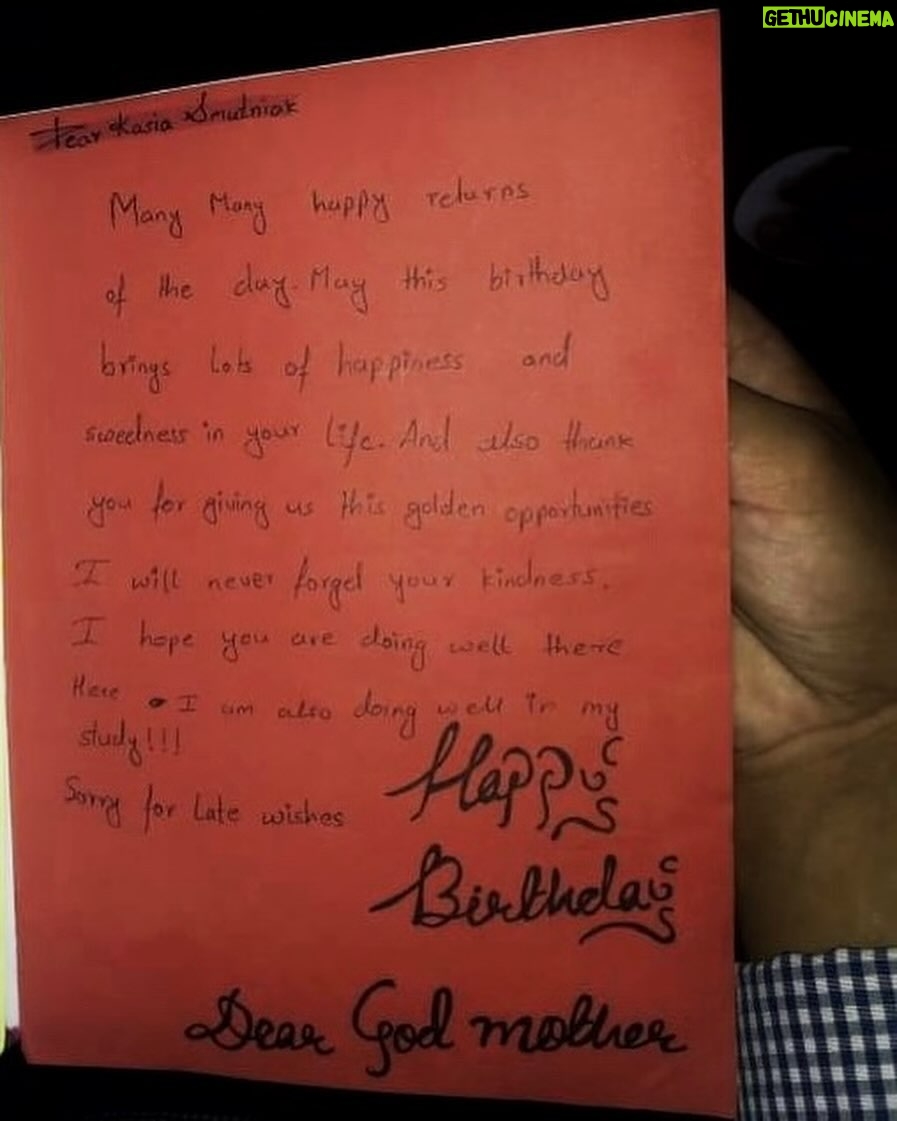 GETHUCINEMA
Dear Kasia Smutniak
Many Many happy returns
of the day. May this birthday
brings lots of happiness and
sweetness in your life. And also thank
you for giving us this golden opportunities
I will never forget your kindness.
I hope you are doing well there
Here I am also doing well in my
study!!!
Sorry for Late wishes
Happy
Birthday
Dear God mother